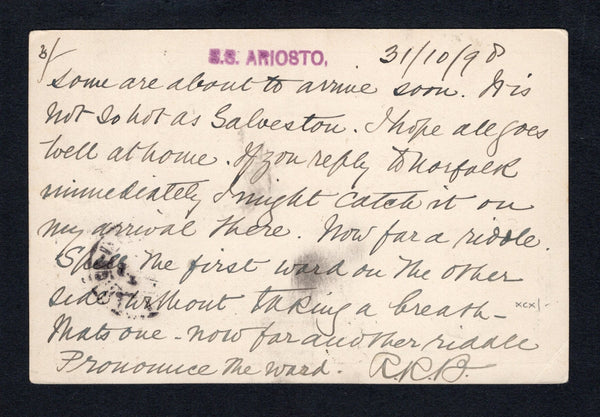 3/ S.S. ARIOSTO, 31/10/98
Some are about to arrive soon. It is
not so hot as Galveston. I hope all goes
well at home. If you reply to Norfolk
immediately I might catch it on
my arrival there. Now for a riddle.
Spell the first word on the other
side without taking a breath -
xcx/-
thats one - now for another riddle
Pronounce the word. R.R.B.